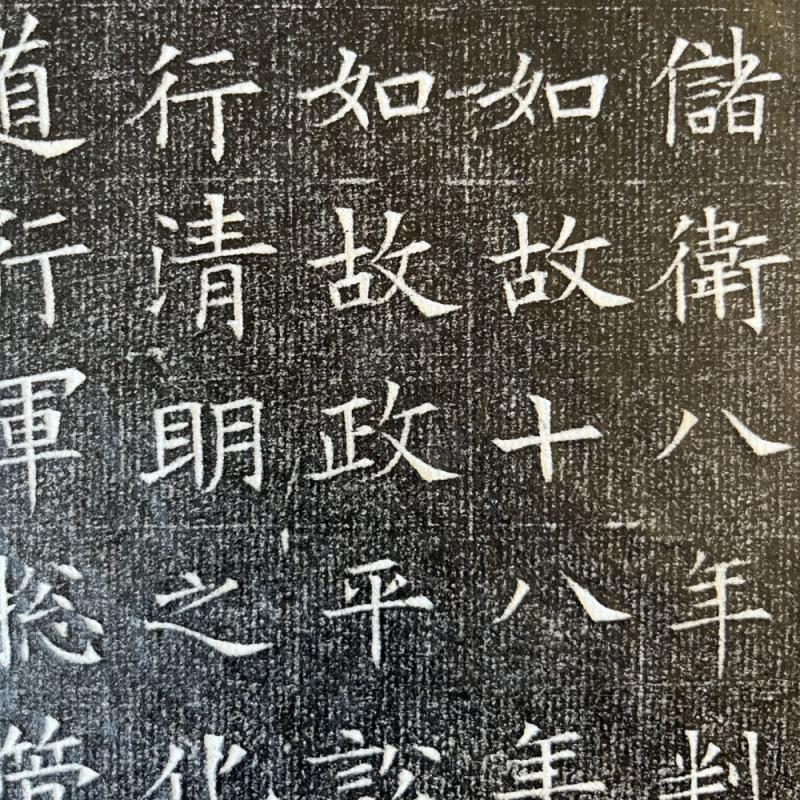 儲衛八年判
如故十八年
如故政平訟
行清明之化
道行軍総管